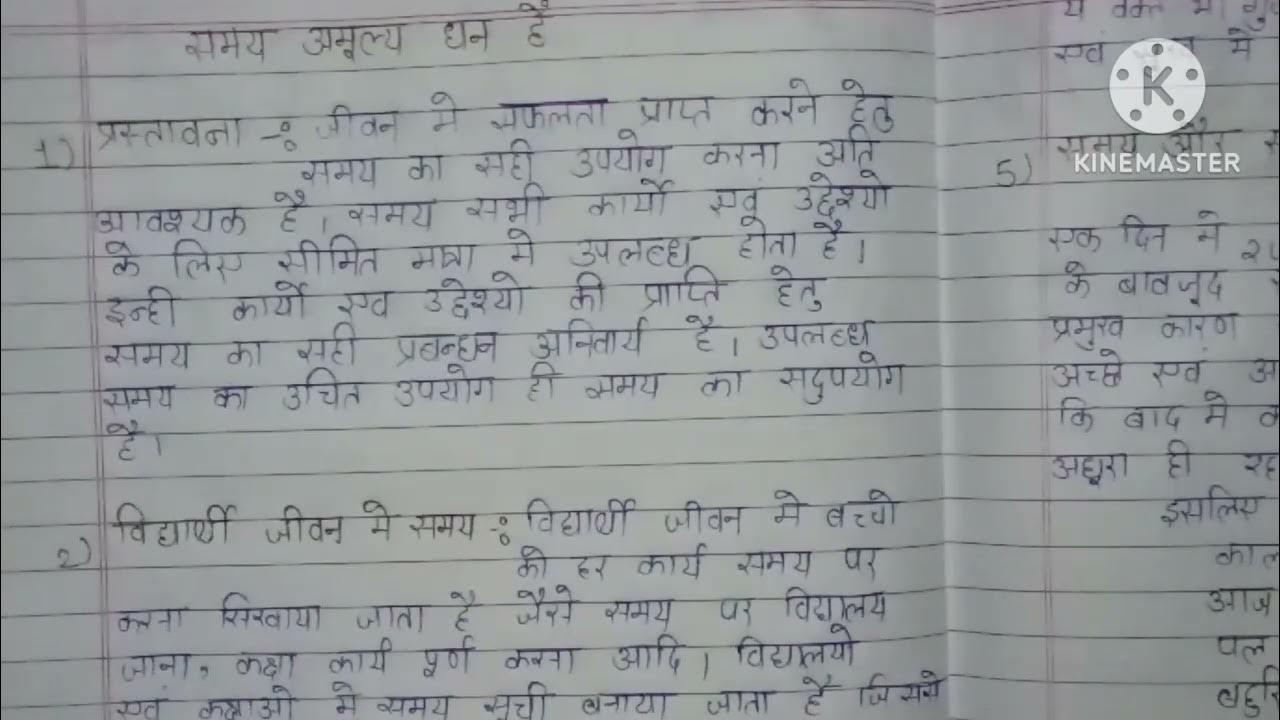 समय अमूल्य धन है
1) प्रस्तावना -: जीवन मे सफलता प्राप्त करने हेतु
समय का सही उपयोग करना अति
आवश्यक है। समय सभी कार्यो एवं उद्देश्यो
के लिए सीमित मात्रा मे उपलब्ध होता है।
इन्ही कार्यो एव उद्देश्यो की प्राप्ति हेतु
समय का सही प्रबन्धन अनिवार्य है। उपलब्ध
समय का उचित उपयोग ही समय का सदुपयोग
है।
2) विद्यार्थी जीवन मे समय -: विद्यार्थी जीवन मे बच्चो
को हर कार्य समय पर
करना सिखाया जाता है जैसे समय पर विद्यालय
जाना, कक्षा कार्य पूर्ण करना आदि। विद्यालयो
एवं कक्षाओ मे समय सूची बनाया जाता है जिससे
एवं मे
5) समय और
एक दिन मे
के बावजूद
प्रमुख कारण
अच्छे एवं
कि बाद मे
अधूरा ही
इसलिए
आज
पल
K
KINEMASTER